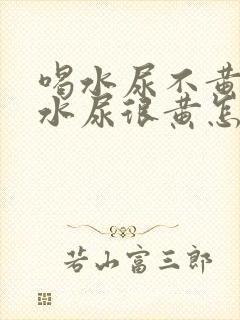 喝水尿不黄
水尿很黄怎
若山富三郎